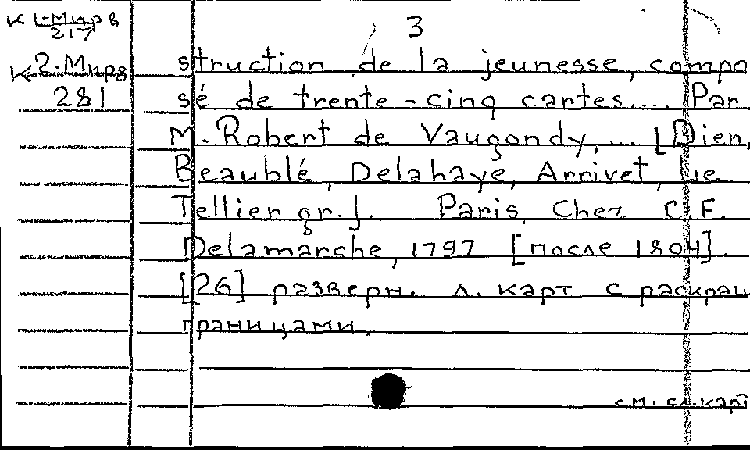 К 1-Мирв
217
3
К 2-Мирв
281
struction de la jeunesse, compo
sé de trente-cinq cartes... Par
M. Robert de Vaugondy,... [Dien,
Beaublé, Delahaye, Arrivet, Le
Tellier gr.]. Paris, Chez C.F.
Delamarche, 1797 [после 1804].
[26] разверн. л. карт с раскраш
границами.
см. сл. карт